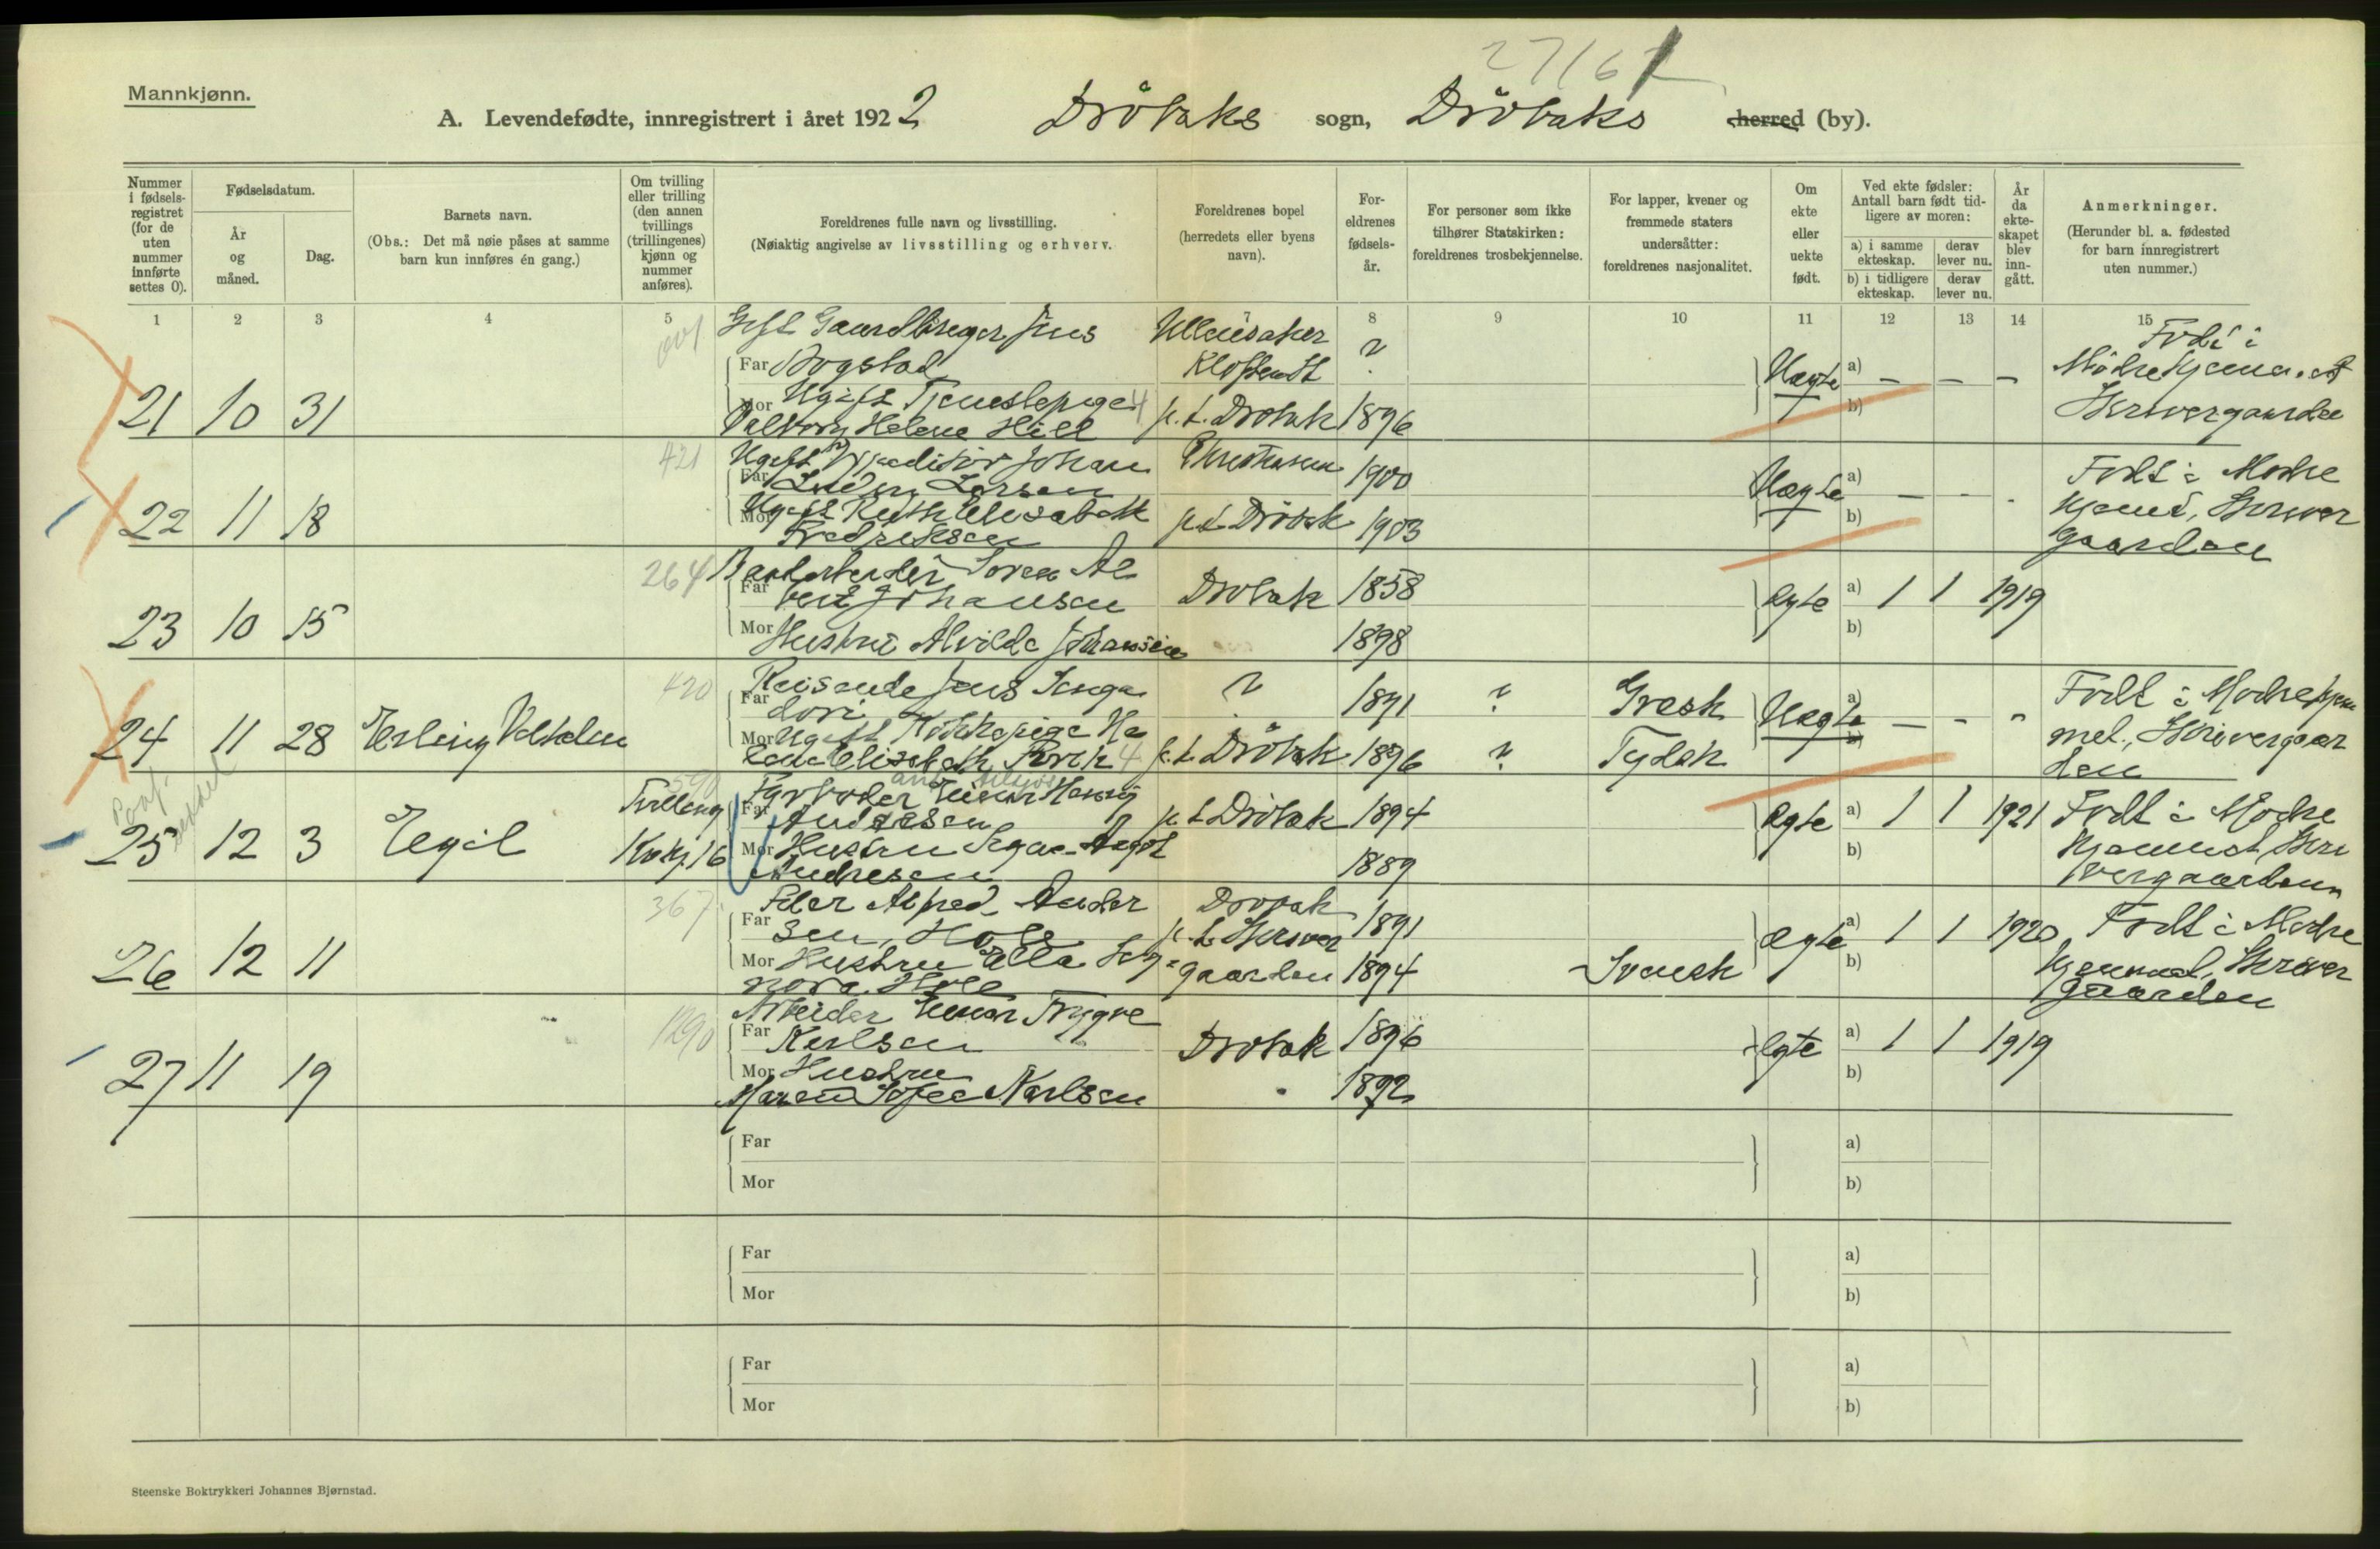 27/6
Mannkjønn.
A. Levendefødte, innregistrert i året 1922 Drøbaks sogn, Drøbaks herred (by).
Nummer i fødselsregistret (for de uten nummer innførte settes 0).
Fødselsdatum.
År og måned.
Dag.
Barnets navn.
(Obs.: Det må nøie påses at samme barn kun innføres én gang.)
Om tvilling eller trilling (den annen tvillings (trillingenes) kjønn og nummer anføres).
Foreldrenes fulle navn og livsstilling.
(Nøiaktig angivelse av livsstilling og erhverv.
Foreldrenes bopel (herredets eller byens navn).
Foreldrenes fødselsår.
For personer som ikke tilhører Statskirken: foreldrenes trosbekjennelse.
For lapper, kvener og fremmede staters undersåtter: foreldrenes nasjonalitet.
Om ekte eller uekte født.
Ved ekte fødsler: Antall barn født tidligere av moren:
a) i samme ekteskap.
derav lever nu.
b) i tidligere ekteskap.
derav lever nu.
År da ekteskapet blev inngått.
Anmerkninger.
(Herunder bl. a. fødested for barn innregistrert uten nummer.)
1 2 3 4 5 7 8 9 10 11 12 13 14 15
21 10 31
Gift Gaardbruger Jens
Far Bogstad
Ullensaker
?
Mor Ugift Tjenestepige
Valborg Helene Hill
p.t. Drøbak 1896
Uægte a) – – –
b)
Født i
Mødrehjemmet
Skrivergaarden
421
22 11 18
Ugift Expeditør Johan
Far Ludvig Larsen
1900
Mor Ugift Ruth Elisabeth
Fredriksen
p.t. Drøbak 1903
Uægte a) – – -
b)
Født i Mødre
hjemt, Skriver
gaarden
264
23 10 15
Far
Johansen
Drøbak 1858
Mor Hustru Alvilde Johansen
1898
Ægte a) 1 1 1919
b)
420
24 11 28 Erling
Reisende Jens
Far
? 1891 ? Græsk
Mor Ugift Kokkepige He
lene Elisabeth
p.t. Drøbak 1896 ? Tydsk
Uægte a) – - -
b)
Født i Mødrehjem
met, Skrivergaar
den
590
25 12 3 Egil
Tvilling
Kvkj 16
Fyrbøder Einar Henry
Far Andresen
p.t Drøbak 1894
Mor Hustru Signe Aagot
Andresen
1889
Ægte a) 1 1 1921
b)
Født i Mødre
hjemmet, Skri
vergaarden
367
26 12 11
Peder Alfred Ander
Far sen, Hole
Drøbak
p.t. Skriver 1891
Mor Hustru Ella Sig-
nora Hole
gaarden 1894 Svensk
Ægte a) 1 1 1920
b)
Født i Mødre
hjemmet, Skriver
gaarden
1290
27 11 19
Arbeider Einar Trygve
Far Karlsen
Drøbak 1896
Mor Hustru
Maren Sofie Karlsen
1892
Ægte a) 1 1 1919
b)
Far a)
Mor b)
Far a)
Mor b)
Far a)
Mor b)
Steenske Boktrykkeri Johannes Bjørnstad.